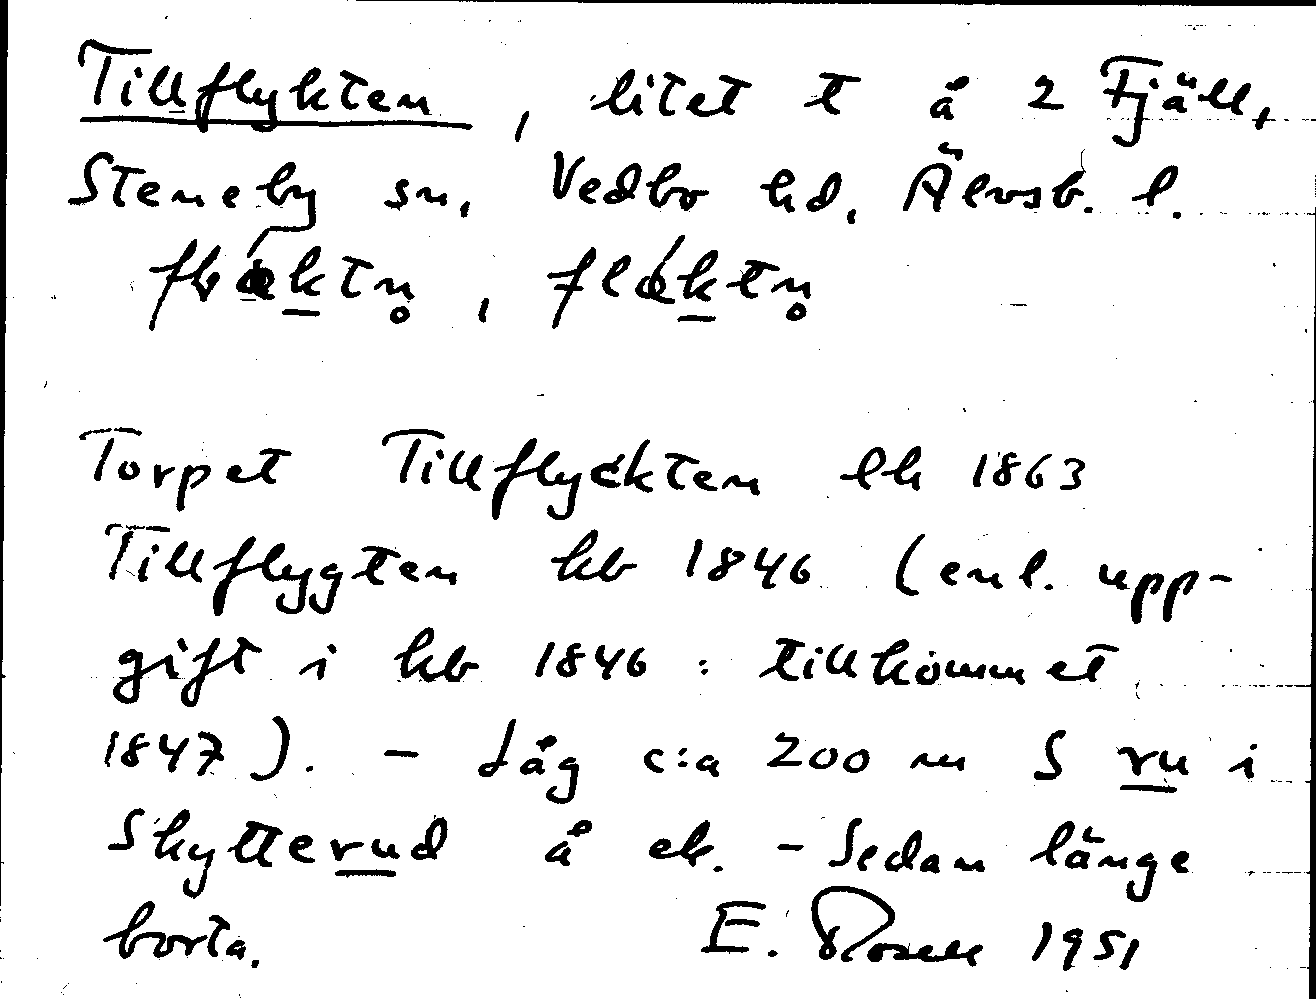 Tillflykten, litet t å 2 Fjäll,
Steneby sn, Vedbo hd, Älvsb. l.
Torpet Tillflyckten lh 1863
Tillflygten kb 1846 (enl. upp-
gift i kb 1846 : tillkommet
1847). - Låg c:a 200 m S ru i
Skytterud å ek. - Sedan länge
borta. E. Rosell 1951